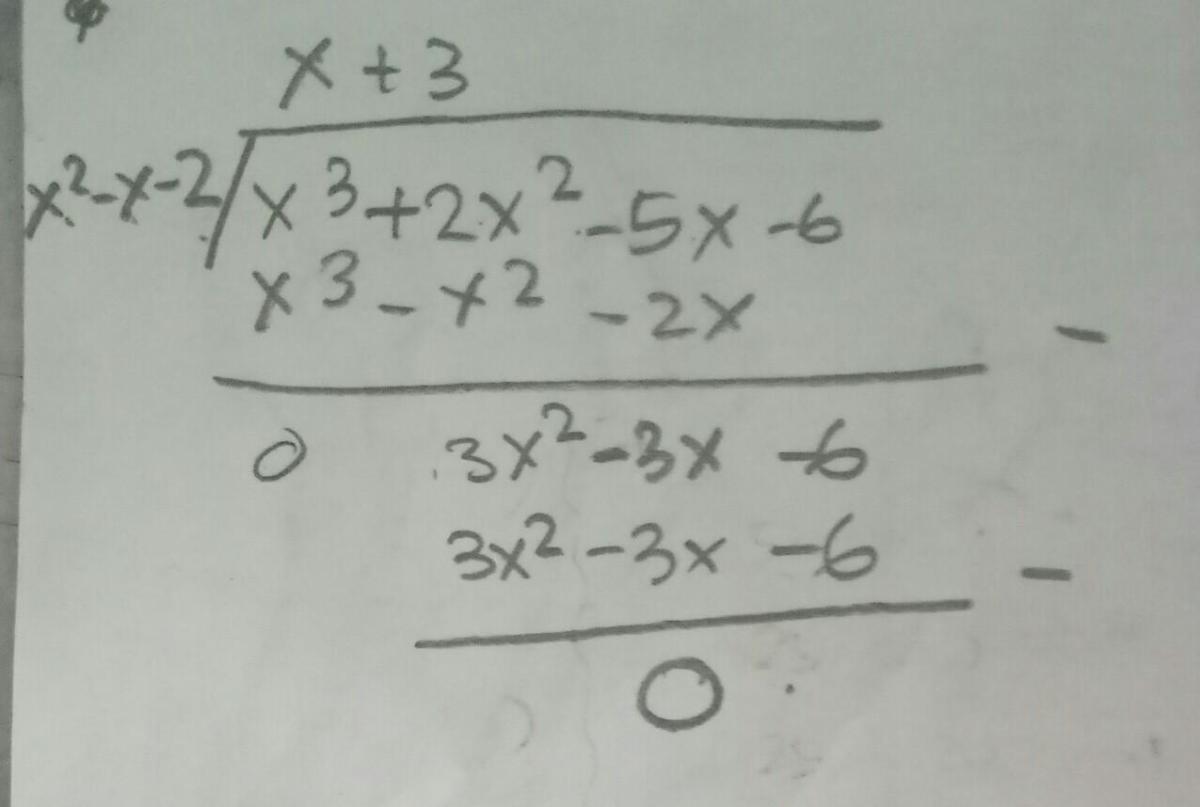 x + 3
x²-x-2 / x³+2x²-5x-6
x³-x²-2x -
0 3x²-3x -6
3x²-3x -6 -
0